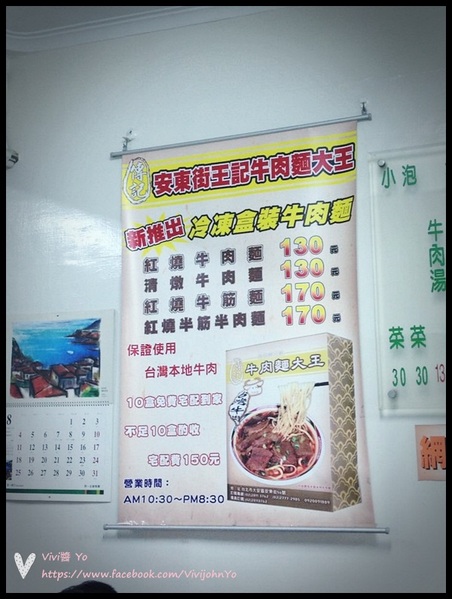 傳記
安東街王記牛肉麵大王
新推出 冷凍盒裝牛肉麵
紅燒牛肉麵 130元
清燉牛肉麵 130元
紅燒牛筋麵 170元
紅燒半筋半肉麵 170元
保證使用
台灣本地牛肉
10盒免費宅配到家
不足10盒酌收
宅配費150元
營業時間：
AM10:30～PM8:30
牛肉麵大王
小 泡
牛肉湯
菜 菜
30 30 13
8
4 5 6 7 8 9 10
11 12 13 14 15 16 17
18 19 20 21 22 23 24
25 26 27 28 29 30 31
Vivi醬 Yo
https://www.facebook.com/VivijohnYo